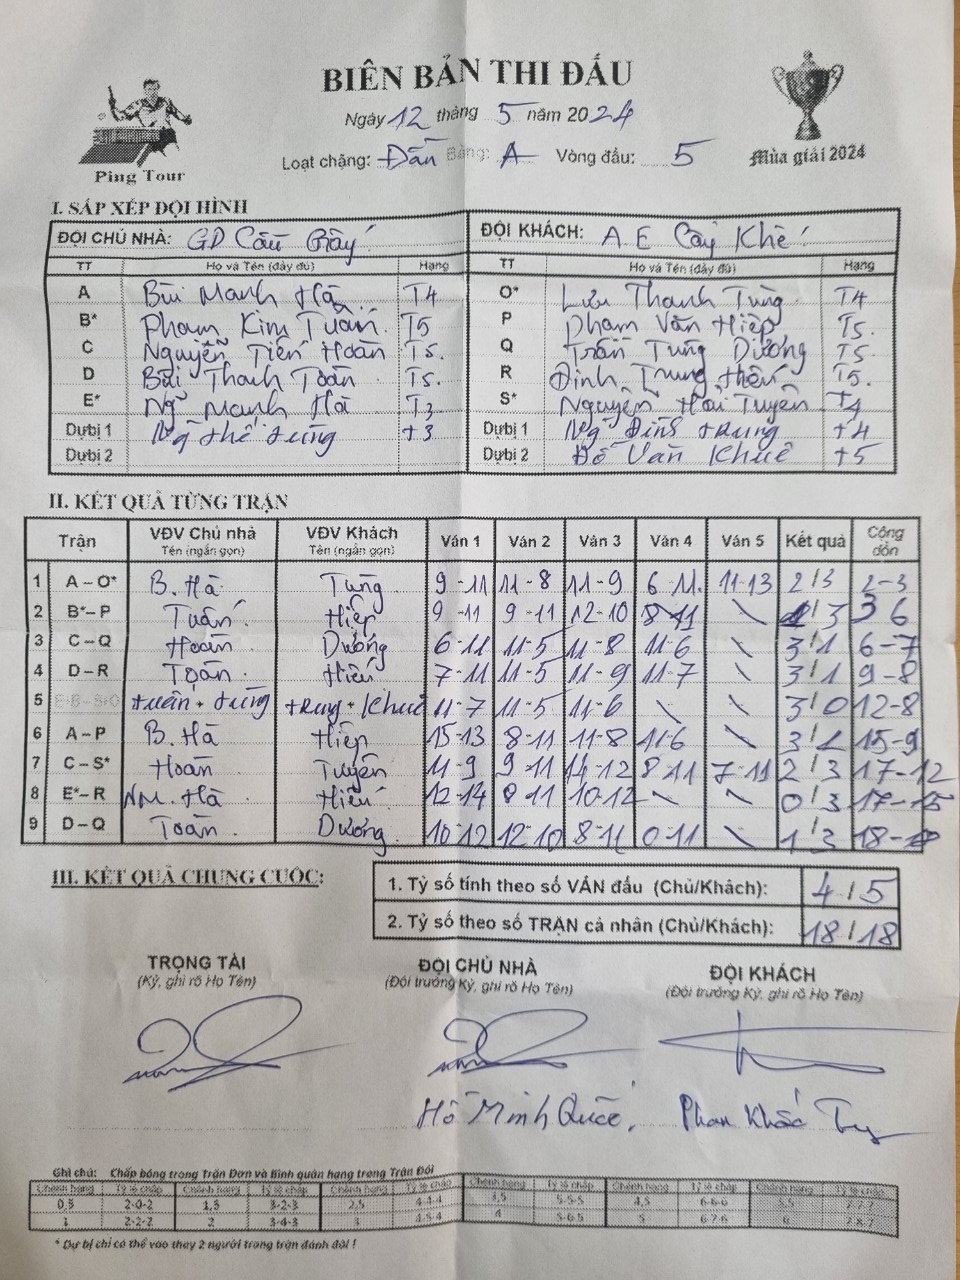 BIÊN BẢN THI ĐẤU
Ngày 12 tháng 5 năm 2024
Ping Tour
Loạt chặng: Dần Bảng: A Vòng đấu: 5
Mùa giải 2024
I. SẮP XẾP ĐỘI HÌNH
ĐỘI CHỦ NHÀ: GD Cầu Giấy ĐỘI KHÁCH: A E Cây Khế
TT Họ và Tên (đầy đủ) Hạng TT Họ và Tên (đầy đủ) Hạng
A Bùi Mạnh Hà T4 O* Lưu Thanh Tùng T4
B* Phạm Kim Tuấn T5 P Phạm Văn Hiệp T5.
C Nguyễn Tiến Hoàn T5. Q Trần Tùng Dương T5
D Bùi Thanh Toàn T5. R Đinh Trung Hiếu T5.
E* Ng Mạnh Hà T3 S* Nguyễn Hải Tuyên T4
Dự bị 1 Ng thế tùng t3 Dự bị 1 Ng Đình trung t4
Dự bị 2 Dự bị 2 Đỗ Văn Khuê t5
II. KẾT QUẢ TỪNG TRẬN
Trận VĐV Chủ nhà Tên (ngắn gọn) VĐV Khách Tên (ngắn gọn) Ván 1 Ván 2 Ván 3 Ván 4 Ván 5 Kết quả Cộng dồn
1 A – O* B. Hà Tùng 9-11 11-8 11-9 6-11. 11-13 2/3 2-3
2 B* – P Tuấn Hiệp 9-11 9-11 12-10 8-11 \ /3 3 6
3 C – Q Hoàn Dương 6-11 11-5 11-8 11-6 \ 3/1 6-7
4 D – R Toàn Hiếu 7-11 11-5 11-9 11-7 \ 3/1 9-8
5 tuấn + tùng trung + Khuê 11-7 11-5 11-6 \ \ 3/0 12-8
6 A – P B. Hà Hiệp 15-13 8-11 11-8 11-6 \ 3/1 15-9
7 C – S* Hoàn Tuyên 11-9 9-11 14-12 8-11 7-11 2/3 17-12
8 E* – R NM. Hà Hiếu 12-14 9-11 10-12 \ \ 0/3 17-15
9 D – Q Toàn Dương 10-12 12-10 8-11 0-11 \ 1/3 18-18
III. KẾT QUẢ CHUNG CUỘC:
1. Tỷ số tính theo số VÁN đấu (Chủ/Khách): 4/5
2. Tỷ số theo số TRẬN cá nhân (Chủ/Khách): 18/18
TRỌNG TÀI ĐỘI CHỦ NHÀ ĐỘI KHÁCH
(Ký, ghi rõ Họ Tên) (Đội trưởng Ký, ghi rõ Họ Tên) (Đội trưởng Ký, ghi rõ Họ Tên)
Hồ Minh Quốc, Phan Khắc
Ghi chú: Chấp bóng trong Trận Đơn và Bình quân hạng trong Trận Đôi
Chênh hạng Tỷ lệ chấp Chênh hạng Tỷ lệ chấp Chênh hạng Tỷ lệ chấp Chênh hạng Tỷ lệ chấp Chênh hạng Tỷ lệ chấp Chênh hạng Tỷ lệ chấp
0,5 2-0-2 1,5 3-2-3 2,5 4-4-4 3,5 5-5-5 4,5 6-6-6 5,5 7-7-7
1 2-2-2 2 3-4-3 3 4-5-4 4 5-6-5 5 6-7-6 6 7-8-7
* Dự bị chỉ có thể vào thay 2 người trong trận đánh đôi !